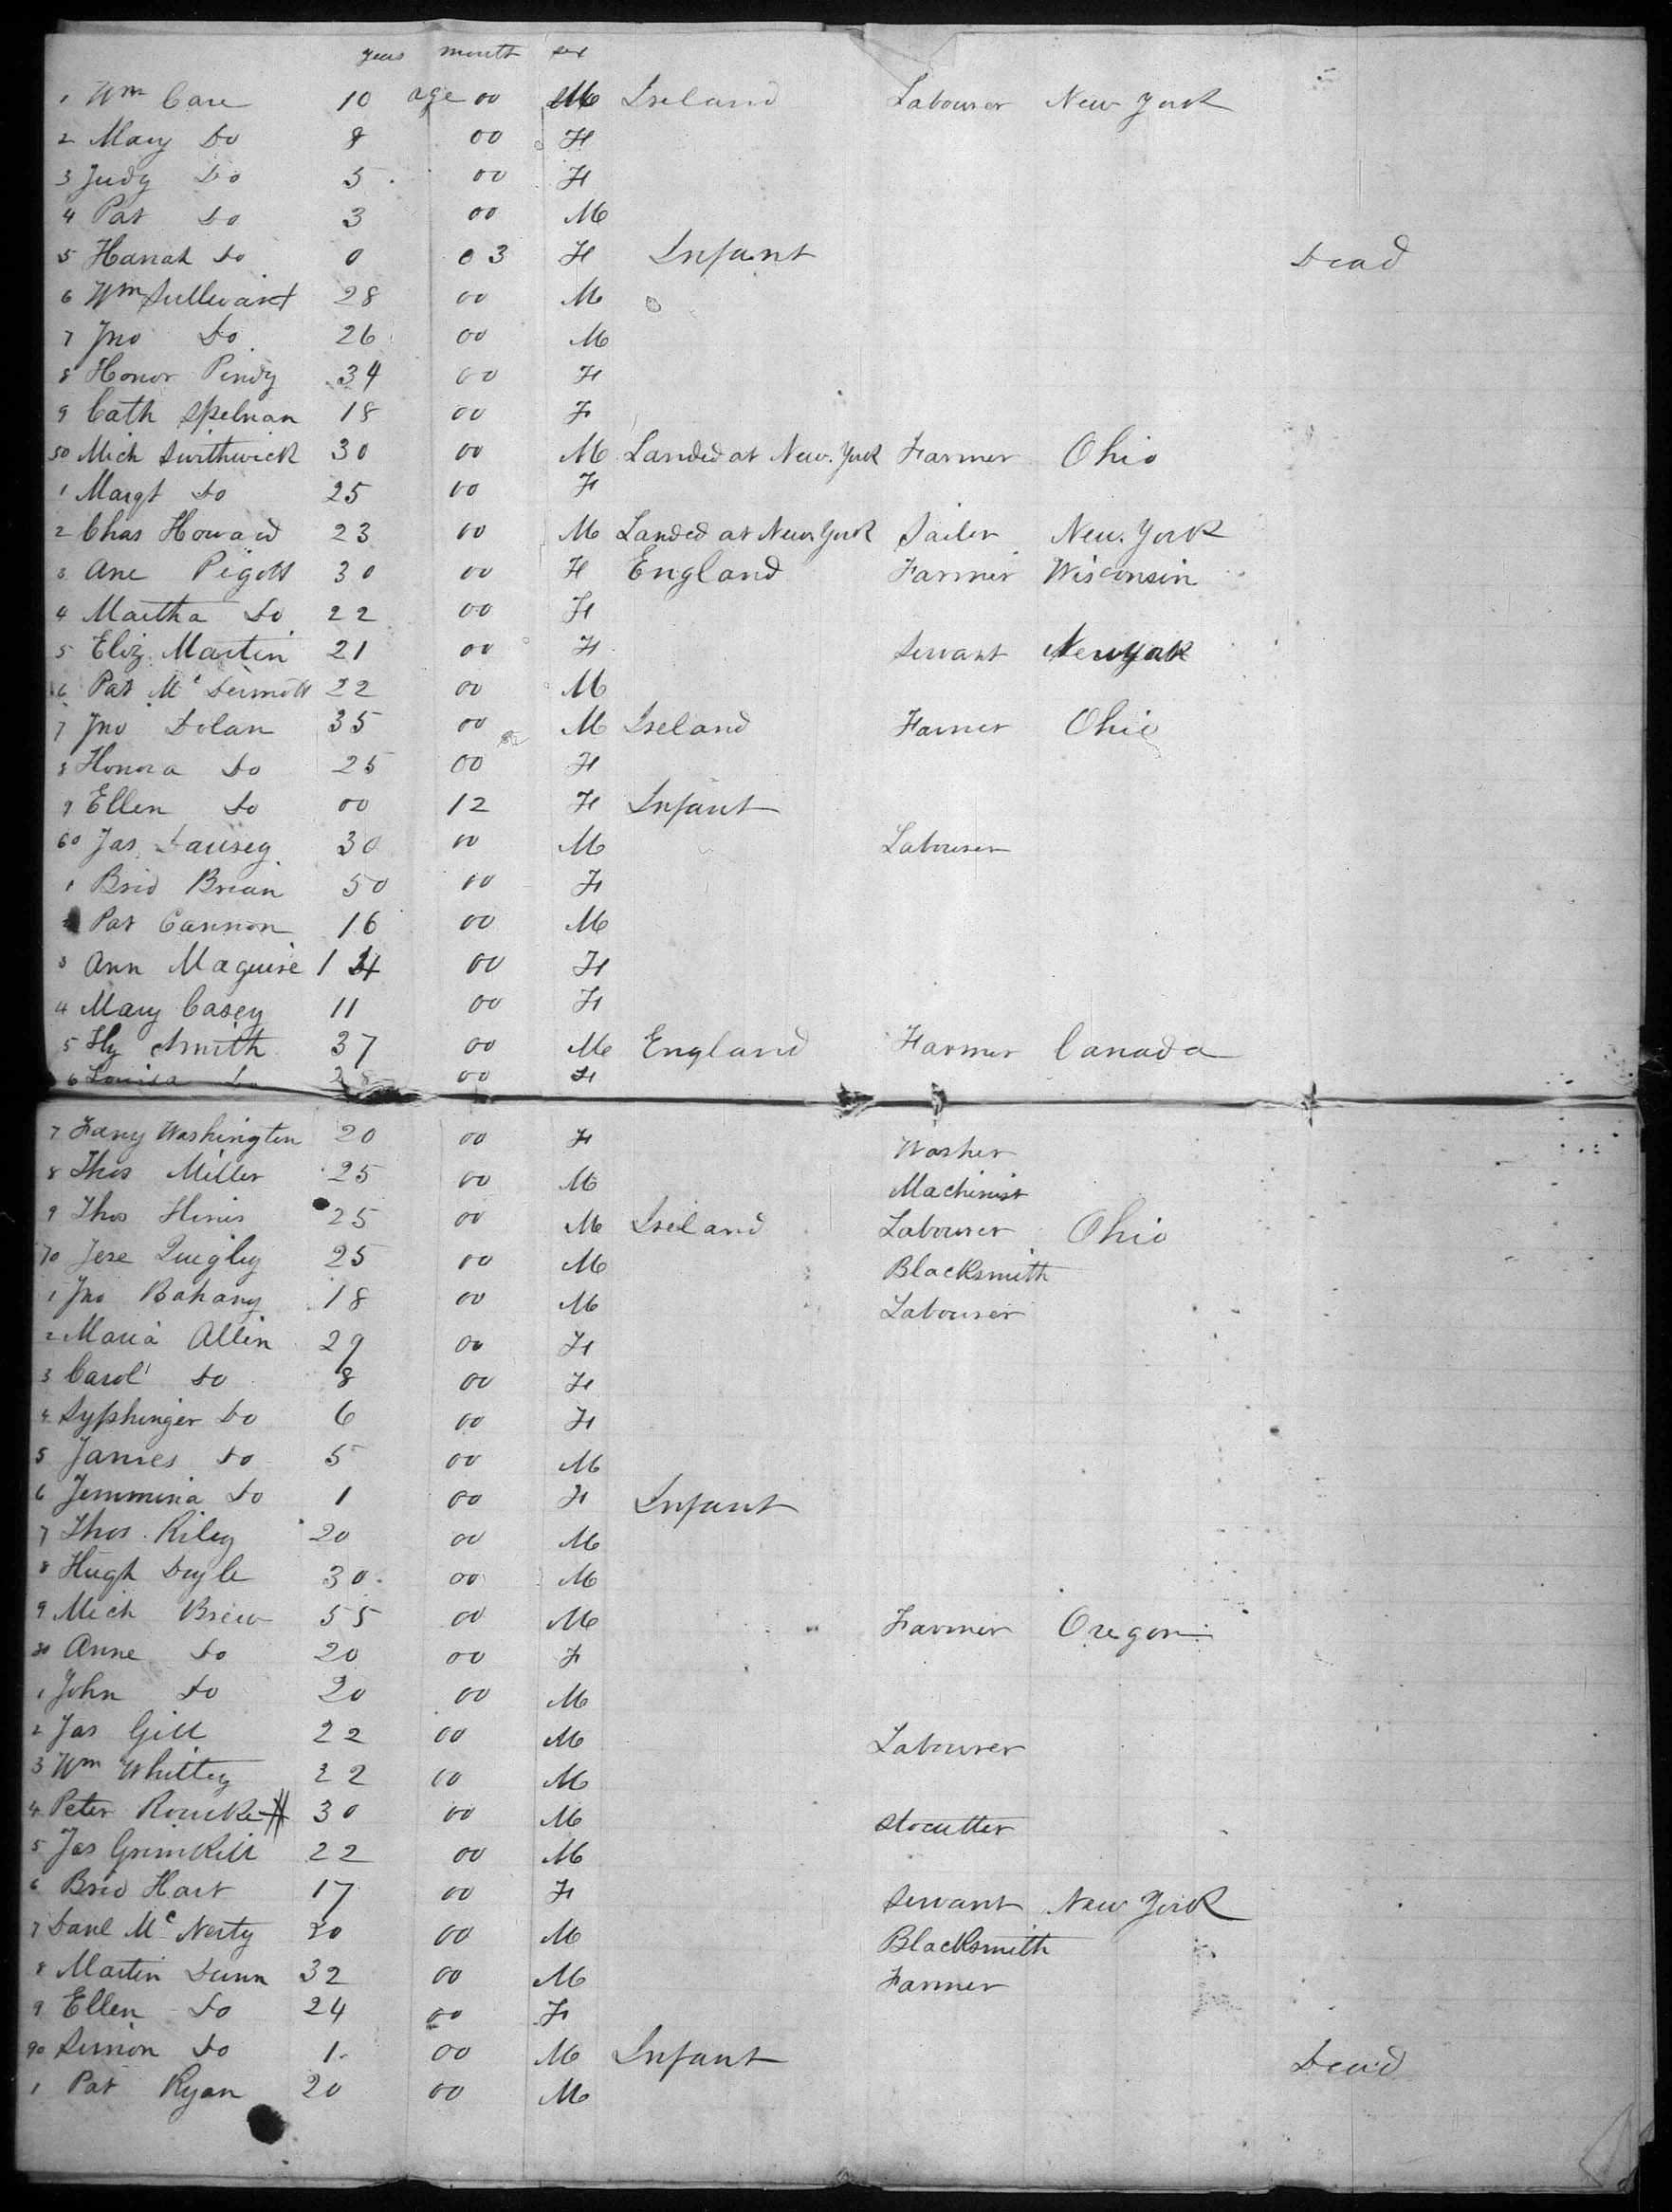 years month sex
1 Wm Care 10 age 00 M Ireland Labourer New York
2 Mary Do 8 00 F
3 Judy Do 5 00 F
4 Pat Do 3 00 M
5 Hanah Do 0 03 F Infant Dead
6 Wm Sullivan 28 00 M
7 Jno Do 26 00 M
8 Honor Pindy 34 00 F
9 Cath Spelman 18 00 F
50 Mich Smithwick 30 00 M Landed at New York Farmer Ohio
1 Margt Do 25 00 F
2 Chas Howard 23 00 M Landed at New York Sailer New York
3 Ane Pigott 30 00 F England Farmer Wisconsin
4 Martha Do 22 00 F
5 Eliz Martin 21 00 F Servant New York
6 Pat Mc Dermott 22 00 M
7 Jno Dolan 35 00 M Ireland Farmer Ohio
8 Honora Do 25 00 F
9 Ellen Do 00 12 F Infant
60 Jas 30 00 M Labourer
1 Brid Brian 50 00 F
Pat Cannon 16 00 M
3 Ann Maguire 14 00 F
4 Mary Casey 11 00 F
5 Hy Smith 37 00 M England Farmer Canada
6 Louisa Do 28 00 F
7 Fany Washington 20 00 F Washer
8 Thos Miller 25 00 M Machinist
9 Thos Hinis 25 00 M Ireland Labourer Ohio
70 Jere Quigley 25 00 M Blacksmith
1 Jno Bahany 18 00 M Labourer
2 Maria Allin 29 00 F
3 Carol Do 8 00 F
4 Syphinger Do 6 00 F
5 James Do 5 00 M
6 Jemmina Do 1 00 F Infant
7 Thos Riley 20 00 M
8 Hugh Doyle 30 00 M
9 Mich Brew 55 00 M Farmer Oregon
80 Anne Do 20 00 F
1 John Do 20 00 M
2 Jas Gill 22 00 M Labourer
3 Wm Whittey 22 00 M
4 Peter Rourke 30 00 M Stocutter
5 Jas Grimkill 22 00 M
6 Brid Hart 17 00 F Servant New York
7 Danl Mc Nerty 20 00 M Blacksmith
8 Martin Dunn 32 00 M Farmer
9 Ellen Do 24 00 F
90 Simon Do 1 00 M Infant Dead
1 Pat Ryan 20 00 M